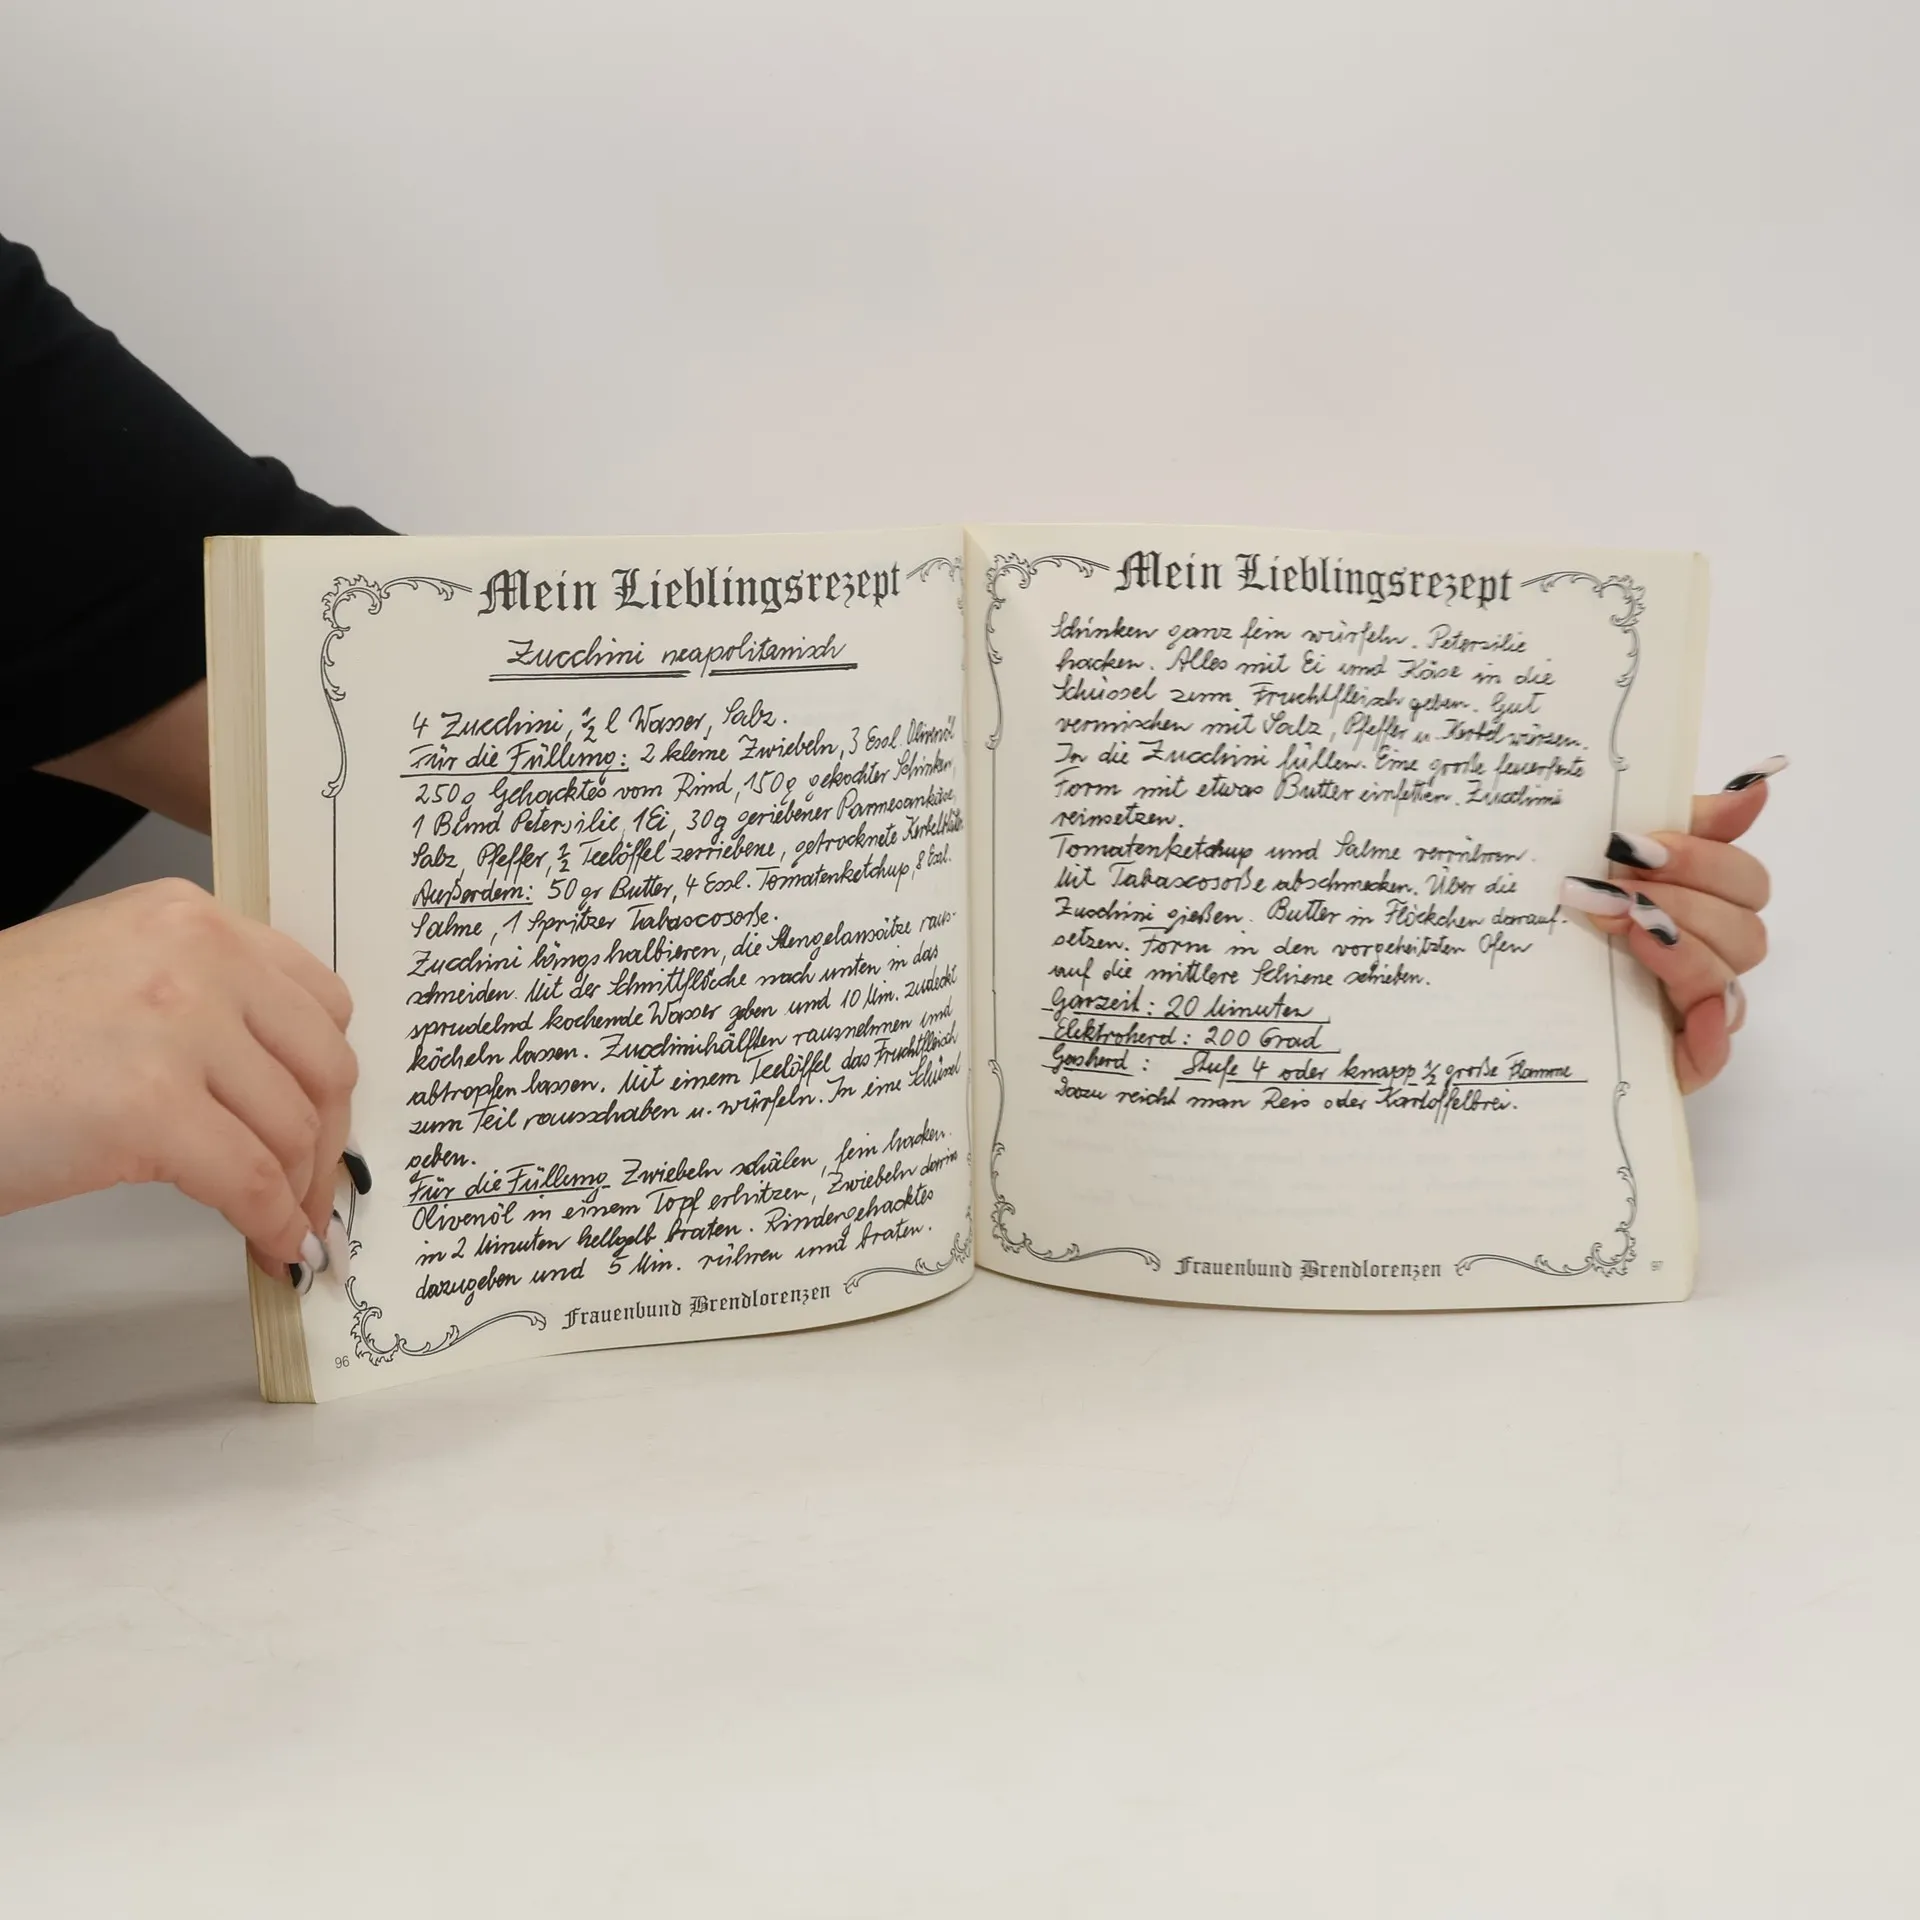 Mein Lieblingsrezept
Zucchini neapolitanisch
4 Zucchini, 1/2 l Wasser, Salz.
Für die Füllung: 2 kleine Zwiebeln, 3 Essl. Olivenöl
250g Gehacktes vom Rind, 150g gekochter Schinken,
1 Bund Petersilie, 1 Ei, 30g geriebener Parmesankäse,
Salz, Pfeffer, 1/2 Teelöffel zerriebene, getrocknete Kerbelblätter
Außerdem: 50 gr Butter, 4 Essl. Tomatenketchup, 8 Essl.
Sahne, 1 Spritzer Tabascosoße.
Zucchini längs halbieren, die Stengelansätze raus-
schneiden. Mit der Schnittfläche nach unten in das
sprudelnd kochende Wasser geben und 10 Min. zudeckt
köcheln lassen. Zucchinihälften rausnehmen und
abtropfen lassen. Mit einem Teelöffel das Fruchtfleisch
zum Teil rausschaben u. würfeln. In eine Schüssel
geben.
Für die Füllung Zwiebeln schälen, fein hacken.
Olivenöl in einem Topf erhitzen, Zwiebeln darin
in 2 Minuten hellgelb braten. Rindergehacktes
dazugeben und 5 Min. rühren und braten.
Frauenbund Brendlorenzen
96
Mein Lieblingsrezept
Schinken ganz fein würfeln. Petersilie
hacken. Alles mit Ei und Käse in die
Schüssel zum Fruchtfleisch geben. Gut
vermischen mit Salz, Pfeffer u. Kerbel würzen.
In die Zucchini füllen. Eine große feuerfeste
Form mit etwas Butter einfetten. Zucchini
reinsetzen.
Tomatenketchup und Sahne verrühren.
Mit Tabascosoße abschmecken. Über die
Zucchini gießen. Butter in Flöckchen darauf-
setzen. Form in den vorgeheitzten Ofen
auf die mittlere Schiene schieben.
Garzeit: 20 Minuten
Elektroherd: 200 Grad
Gasherd: Stufe 4 oder knapp 1/2 große Flamme
Dazu reicht man Reis oder Kartoffelbrei.
Frauenbund Brendlorenzen
97